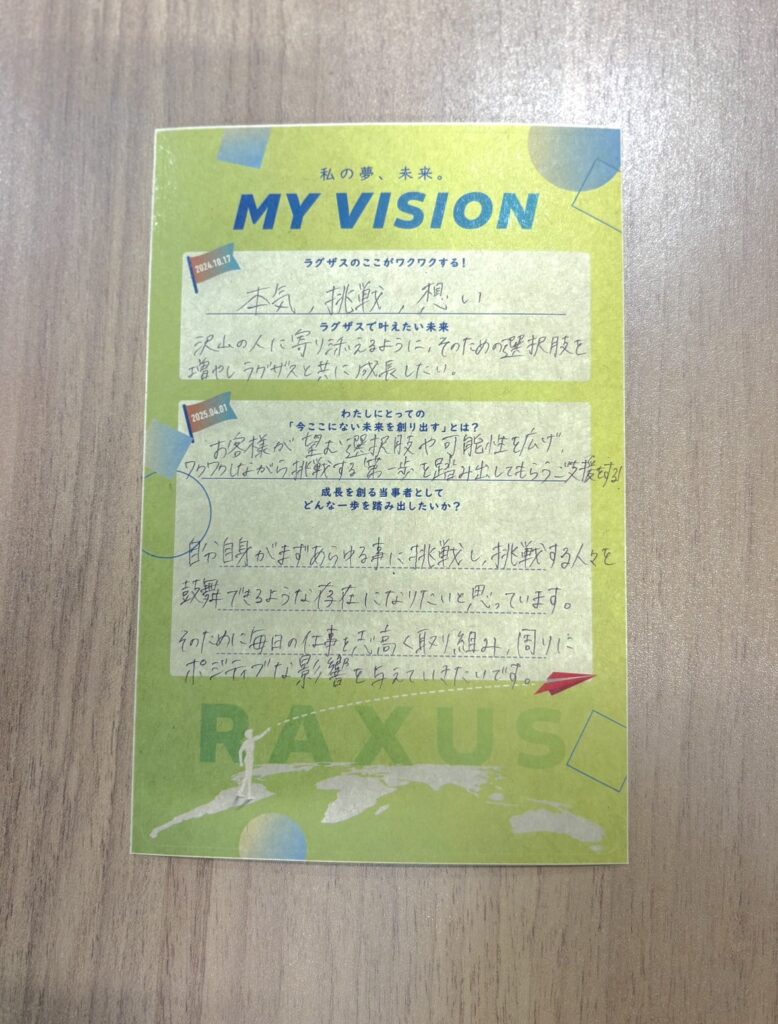 私の夢、未来。
MY VISION
2024.10.17
ラグザスのここがワクワクする！
本気，挑戦，想い
ラグザスで叶えたい未来
沢山の人に寄り添えるように，そのための選択肢を
増やしラグザスと共に成長したい。
2025.04.01
わたしにとっての
「今ここにない未来を創り出す」とは？
お客様が望む選択肢や可能性を広げ，
ワクワクしながら挑戦する第一歩を踏み出してもらうご支援をする！
成長を創る当事者として
どんな一歩を踏み出したいか？
自分自身がまずあらゆる事に挑戦し，挑戦する人々を
鼓舞できるような存在になりたいと思っています。
そのために毎日の仕事を志高く取り組み，周りに
ポジティブな影響を与えていきたいです。
RAXUS